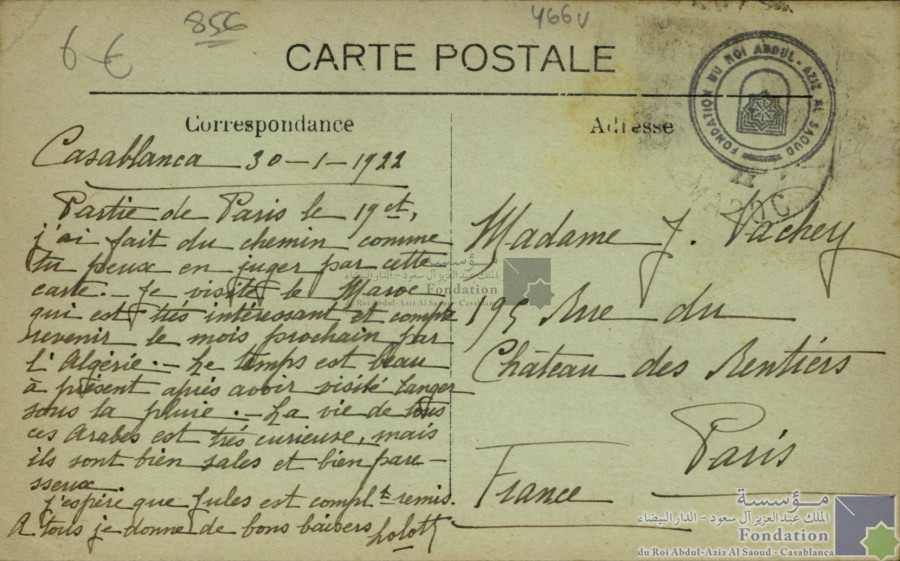 6 €
856
466v
CARTE POSTALE
Correspondance
Adresse
FONDATION DU ROI ABDUL-AZIZ AL SAOUD
MAROC
Casablanca 30-1-1922
Partie de Paris le 19 ct,
j'ai fait du chemin comme
tu peux en juger par cette
carte.- Je visite le Maroc
qui est très intéressant et compte
revenir le mois prochain par
l'Algérie.- Le temps est beau
à présent après avoir visité Tanger
sous la pluie.- La vie de tous
ces Arabes est très curieuse, mais
ils sont bien sales et bien pare-
sseux.
J'espère que Jules est complt remis.
A tous je donne de bons baisers
Lolott
Madame J. Vachey
195 Rue du
Château des Rentiers
Paris
France
مؤسسة
الملك عبد العزيز آل سعود - الدار البيضاء
Fondation
du Roi Abdul-Aziz Al Saoud - Casablanca
مؤسسة
الملك عبد العزيز آل سعود - الدار البيضاء
Fondation
du Roi Abdul-Aziz Al Saoud - Casablanca